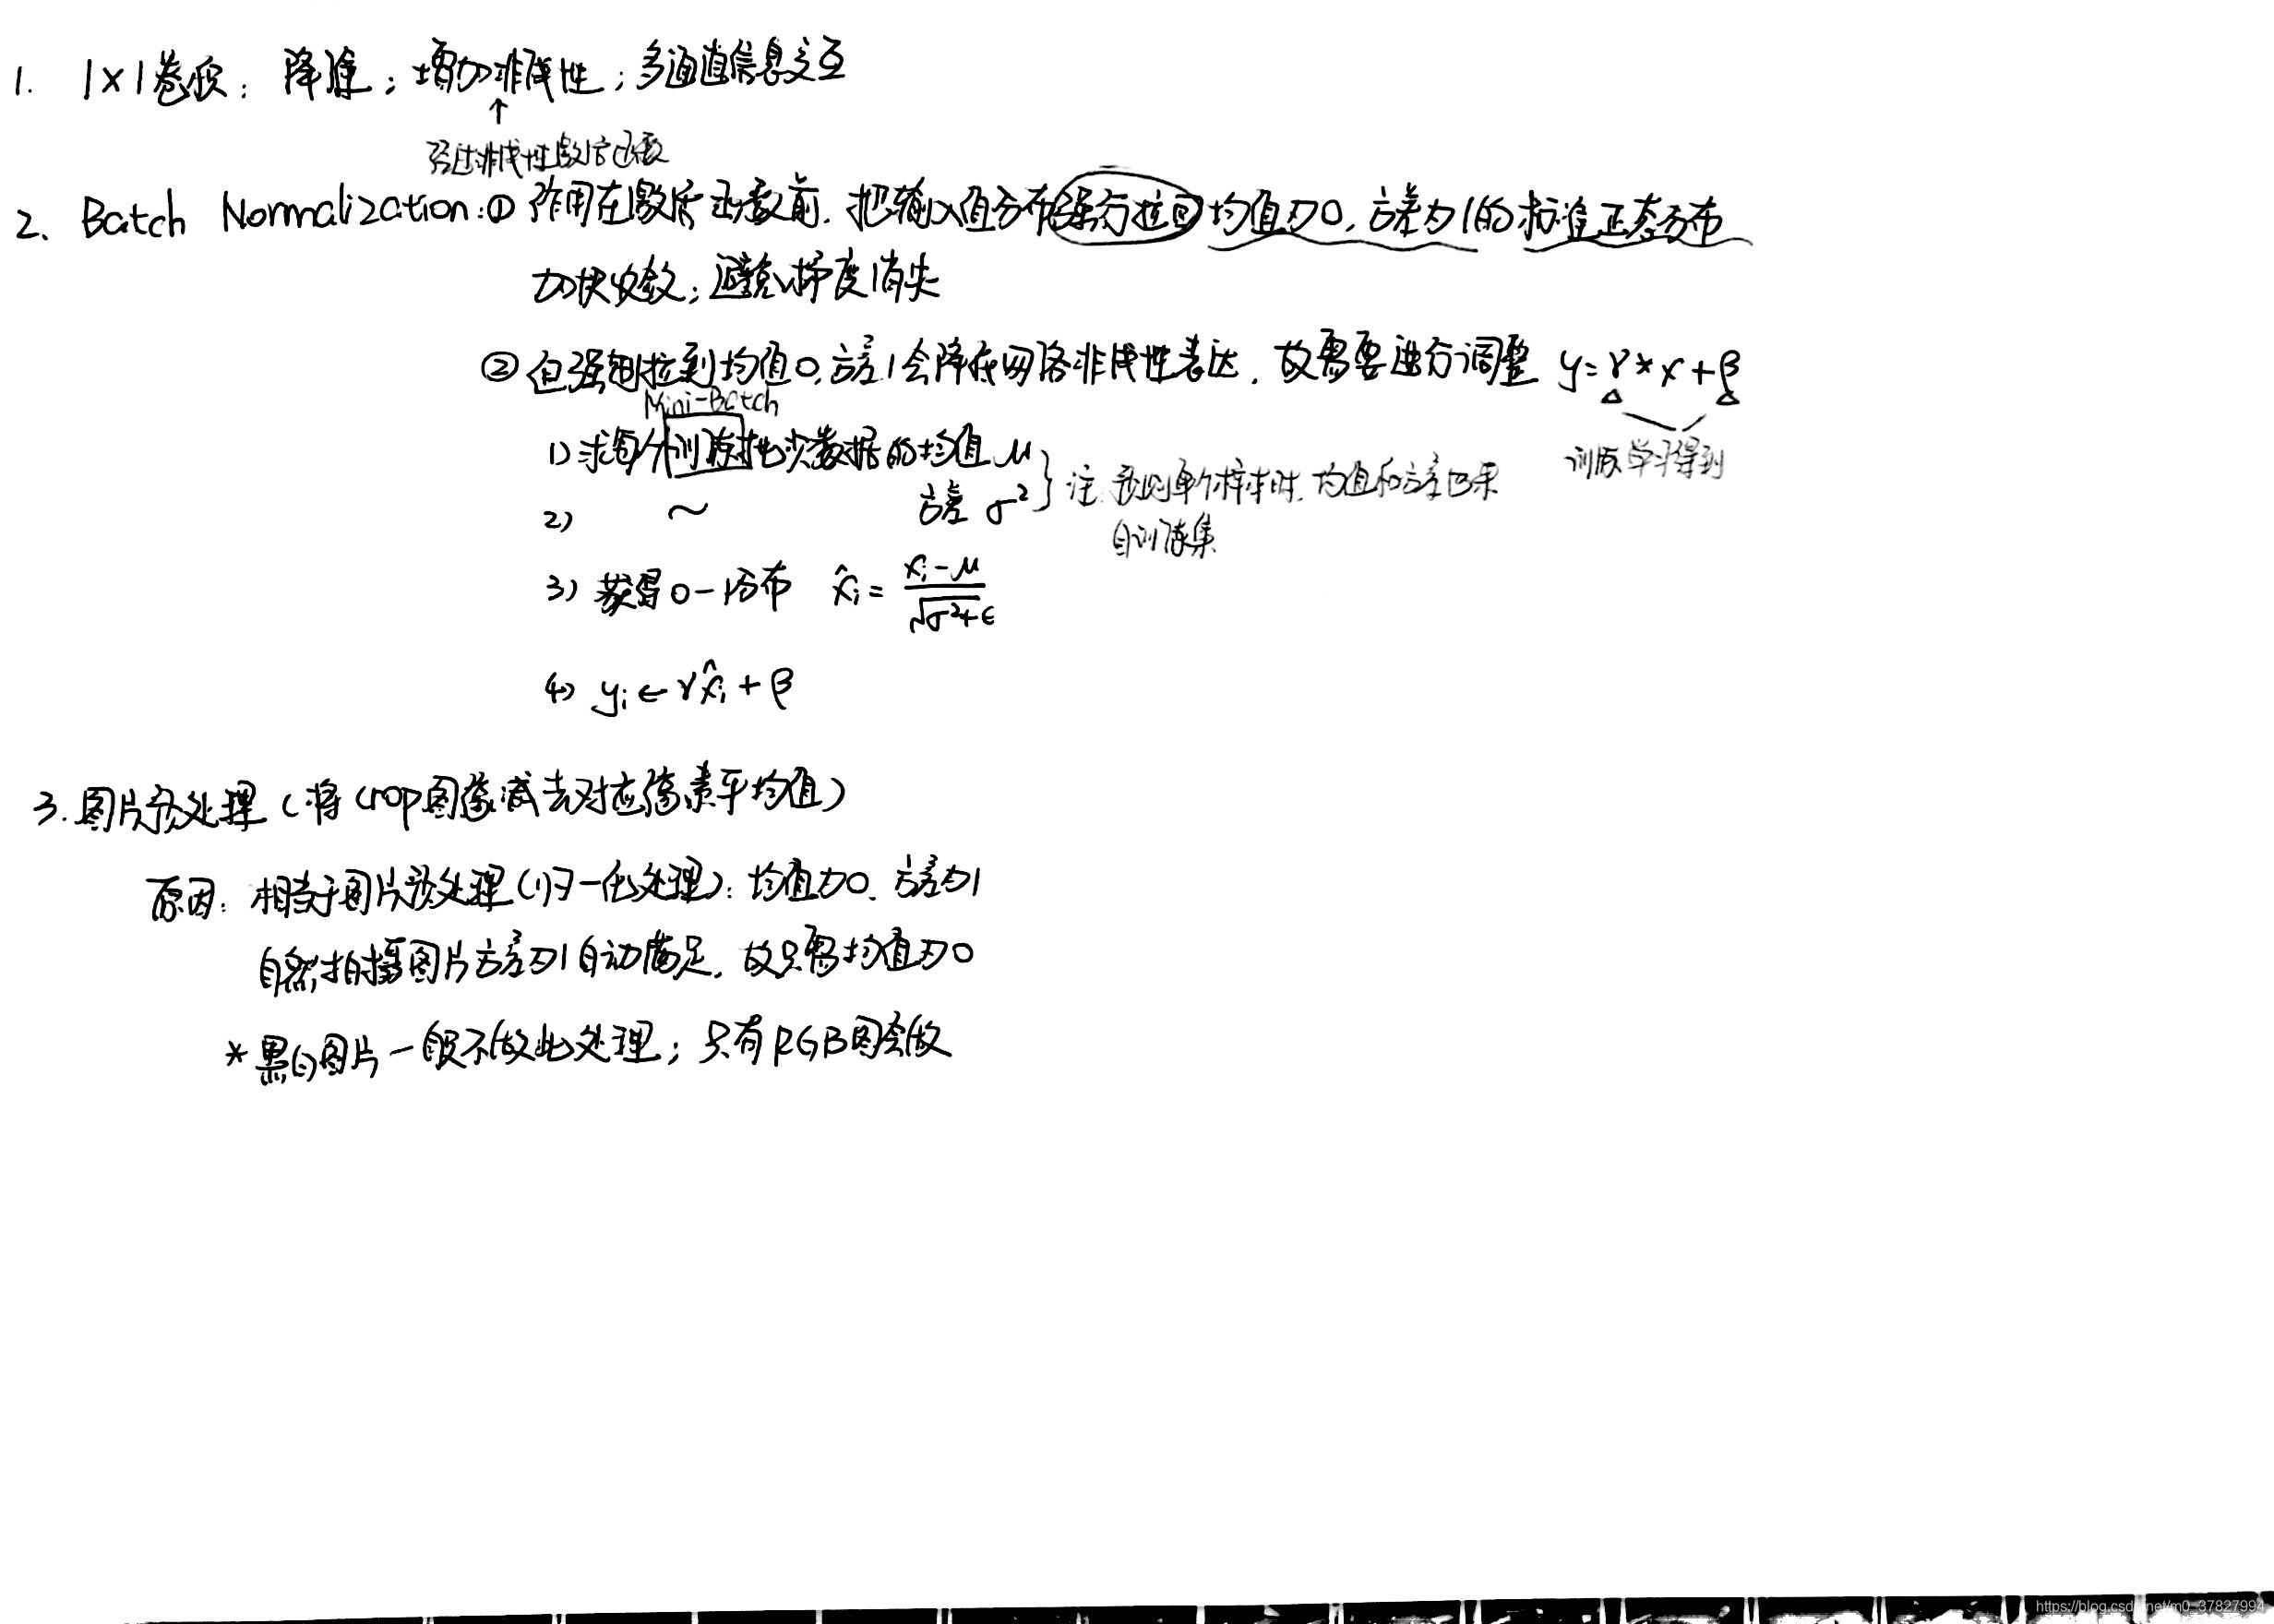 1. 1×1卷积：降维；增加非线性；多通道信息交互
↑
经过非线性激活函数
2、Batch Normalization：① 作用在激活函数前，把输入值分布强行拉回均值为0，方差为1的标准正态分布
加快收敛；避免梯度消失
② 但强制拉到均值0，方差1会降低网络非线性表达，故需要进行调整 y=γ*x+β
Mini-Batch
训练学习得到
1) 求每个训练批次数据的均值 μ
2) ～ 方差 σ²
} 注：预测单个样本时，均值和方差均来
自训练集
3) 获得0-1分布 x̂ᵢ = (xᵢ-μ)/√(σ²+ϵ)
4) yᵢ ← γx̂ᵢ + β
3. 图片预处理（将crop图像减去对应像素平均值）
原因：相当于图片预处理(归一化处理)：均值为0，方差为1
自然拍摄图片方差为1自动满足，故只需均值为0
* 黑白图片一般不做此处理；只有RGB图会做
https://blog.csdn.net/m0_37827994